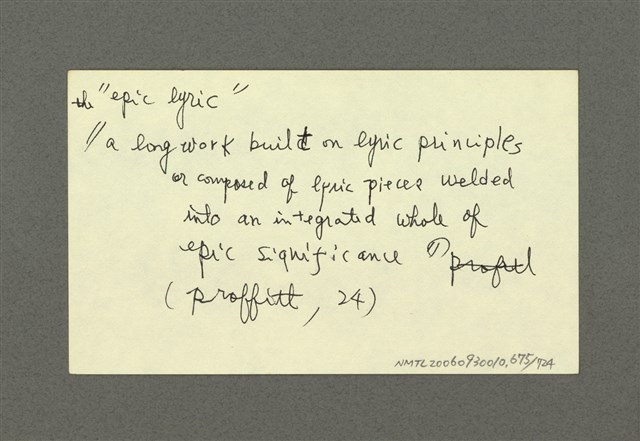 the "epic lyric"
"a long work built on lyric principles
or composed of lyric pieces welded
into an integrated whole of
epic significance"
(proffitt, 24)
NMTL20060930010.675/724